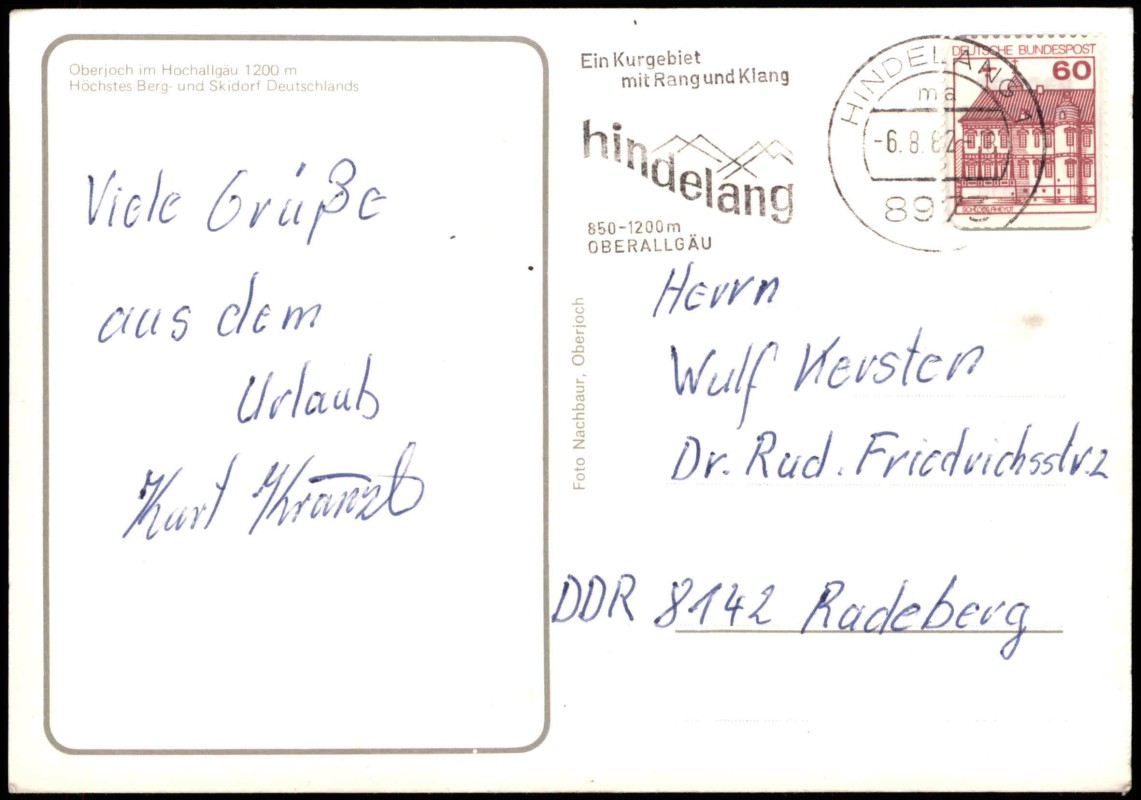 Oberjoch im Hochallgäu 1200 m
Höchstes Berg- und Skidorf Deutschlands
Viele Grüße
aus dem
Urlaub
Kurt Kränzl
Ein Kurgebiet
mit Rang und Klang
hindelang
850-1200m
OBERALLGÄU
HINDELANG 1
ma
-6.8.82
8973
DEUTSCHE BUNDESPOST
60
SCHLOSS RHEYDT
Foto Nachbaur, Oberjoch
Herrn
Wulf Kersten
Dr. Rud. Friedrichsstr. 2
DDR 8142 Radeberg